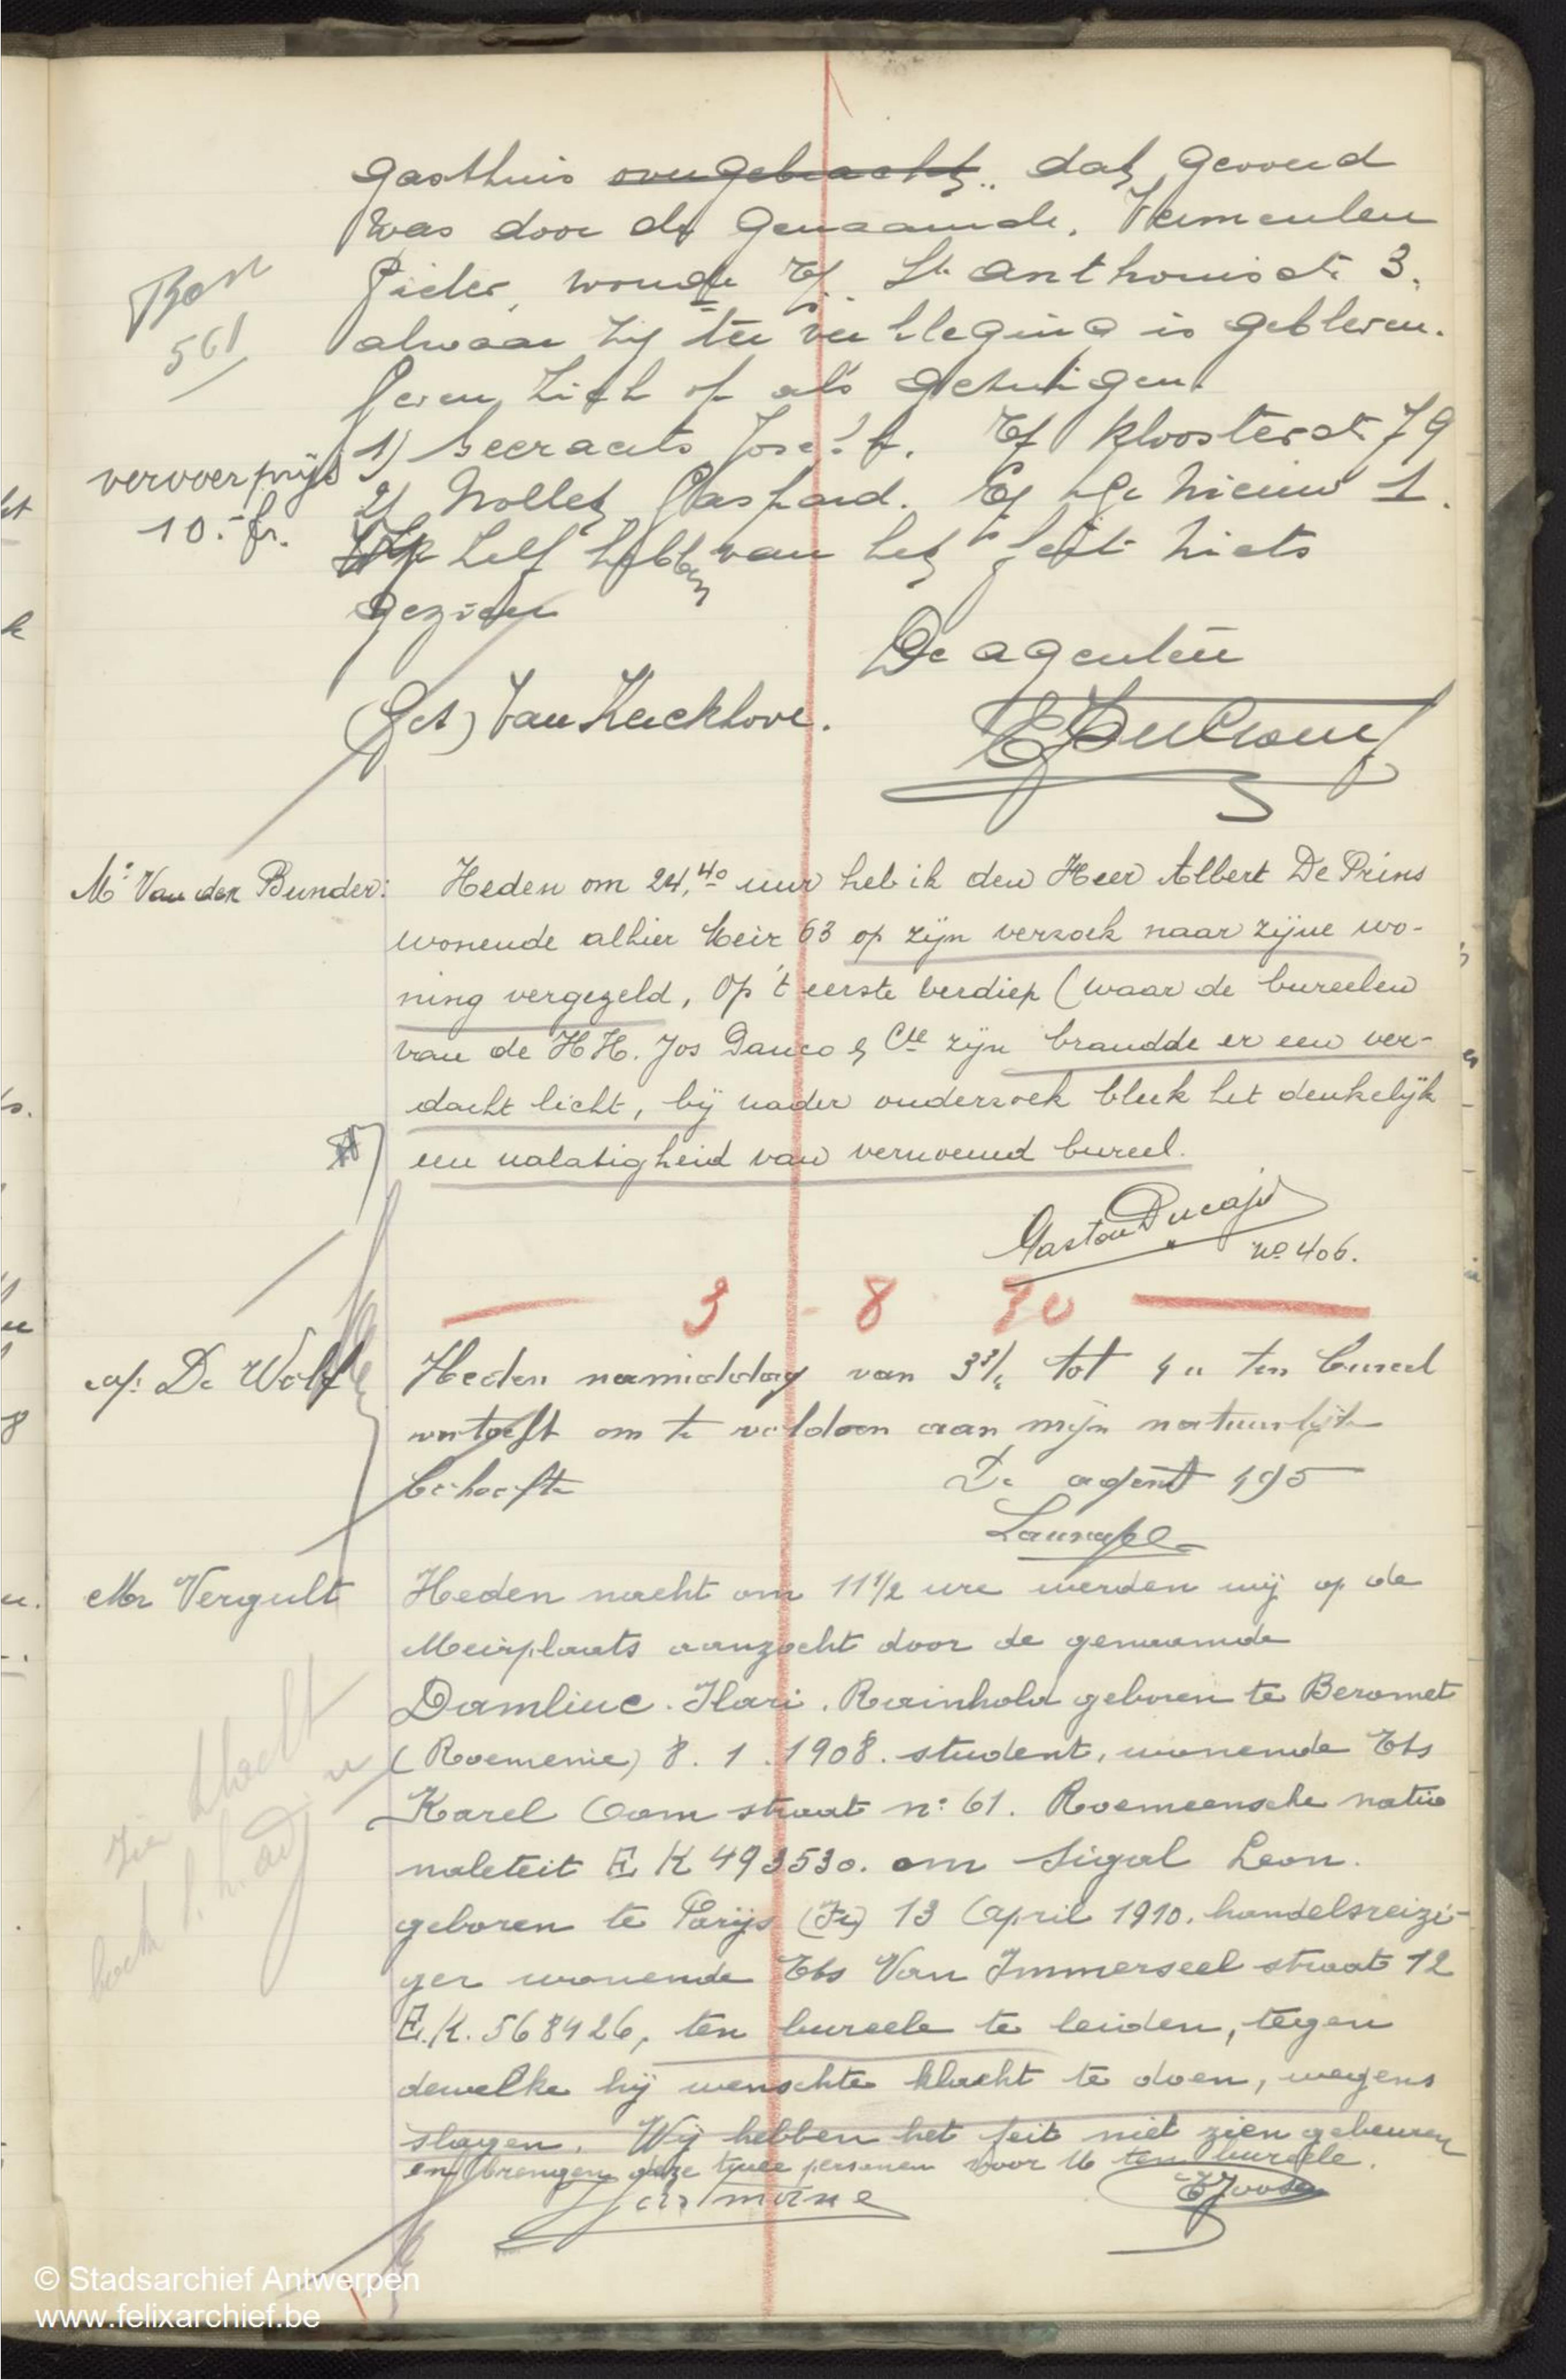 gasthuis overgebracht. dat gevoerd
was door de genaamde. Vermeulen
Pieter, wonde Ef. St. Anthonisstr 3.
alwaar hij ter verpleging is gebleven.
Geven zich op als getuigen.
Bon
561
1) Geeraerts Josef. Ef Kloosterstr 79
2) Nollet Gaspard. Ef Nieuw 1.
vervoerprijs
10.- fr.
zelf hebben van het feit niets
gezien
De agenten
(Get) Van Kerckhove.
Mr Van den Bunder:
Heden om 24,40 uur heb ik den Heer Albert De Prins
wonende alhier Meir 63 op zijn verzoek naar zijne wo-
ning vergezeld, Op 't eerste verdiep (waar de bureelen
van de HH. Jos Danco & Cie zijn brandde er een ver-
dacht licht, bij nader onderzoek bleek het denkelijk
een nalatigheid van vernoemd bureel.
Gaston Ducaju
no 406.
3 - 8 - 30
af: De Wolf
Heden namiddag van 3 3/4 tot 4 u ten bureel
vertoeft om te voldoen aan mijn natuurlijke
behoefte
De agent 495
Mr Vergult
Heden nacht om 11 1/2 ure werden wij op de
Meirplaats aanzocht door de genaamde
Damliuc. Ilari. Rainhold geboren te Beromet
(Roemenie) 8. 1. 1908. student, wonende Ebs
Karel Oom straat n: 61. Roemeensche natio
naleteit E K 493530. om Sigal Leon.
geboren te Parijs (Fr) 13 April 1910. handelsreizi-
ger wonende Ebs Van Immerseel straat 12
E.K. 568426, ten bureele te leiden, tegen
dewelke hij wenschte klacht te doen, wegens
slagen. Wij hebben het feit niet zien gebeuren
en brengen deze twee personen voor U ten bureele.
zie klacht
boek
EJoosen
© Stadsarchief Antwerpen
www.felixarchief.be